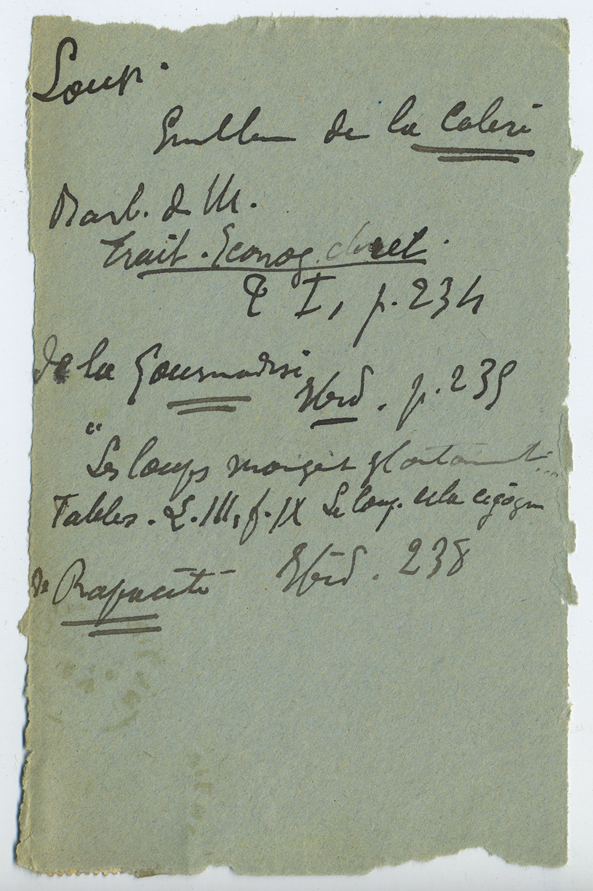 Loup.
Emblem de la Colère
Barb. d. M.
Trait. Econog. chret.
T I, p. 234
de la Gourmandise
Ibid. p. 235
"Les loups mangent gloutonnement...
Fables. L. III, f. IX Le loup et la cigogne
de Rapacité Ibid. 238